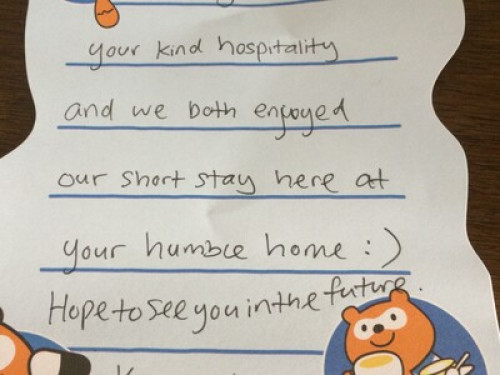 your kind hospitality
and we both enjoyed
our short stay here at
your humble home :)
Hope to see you in the future.